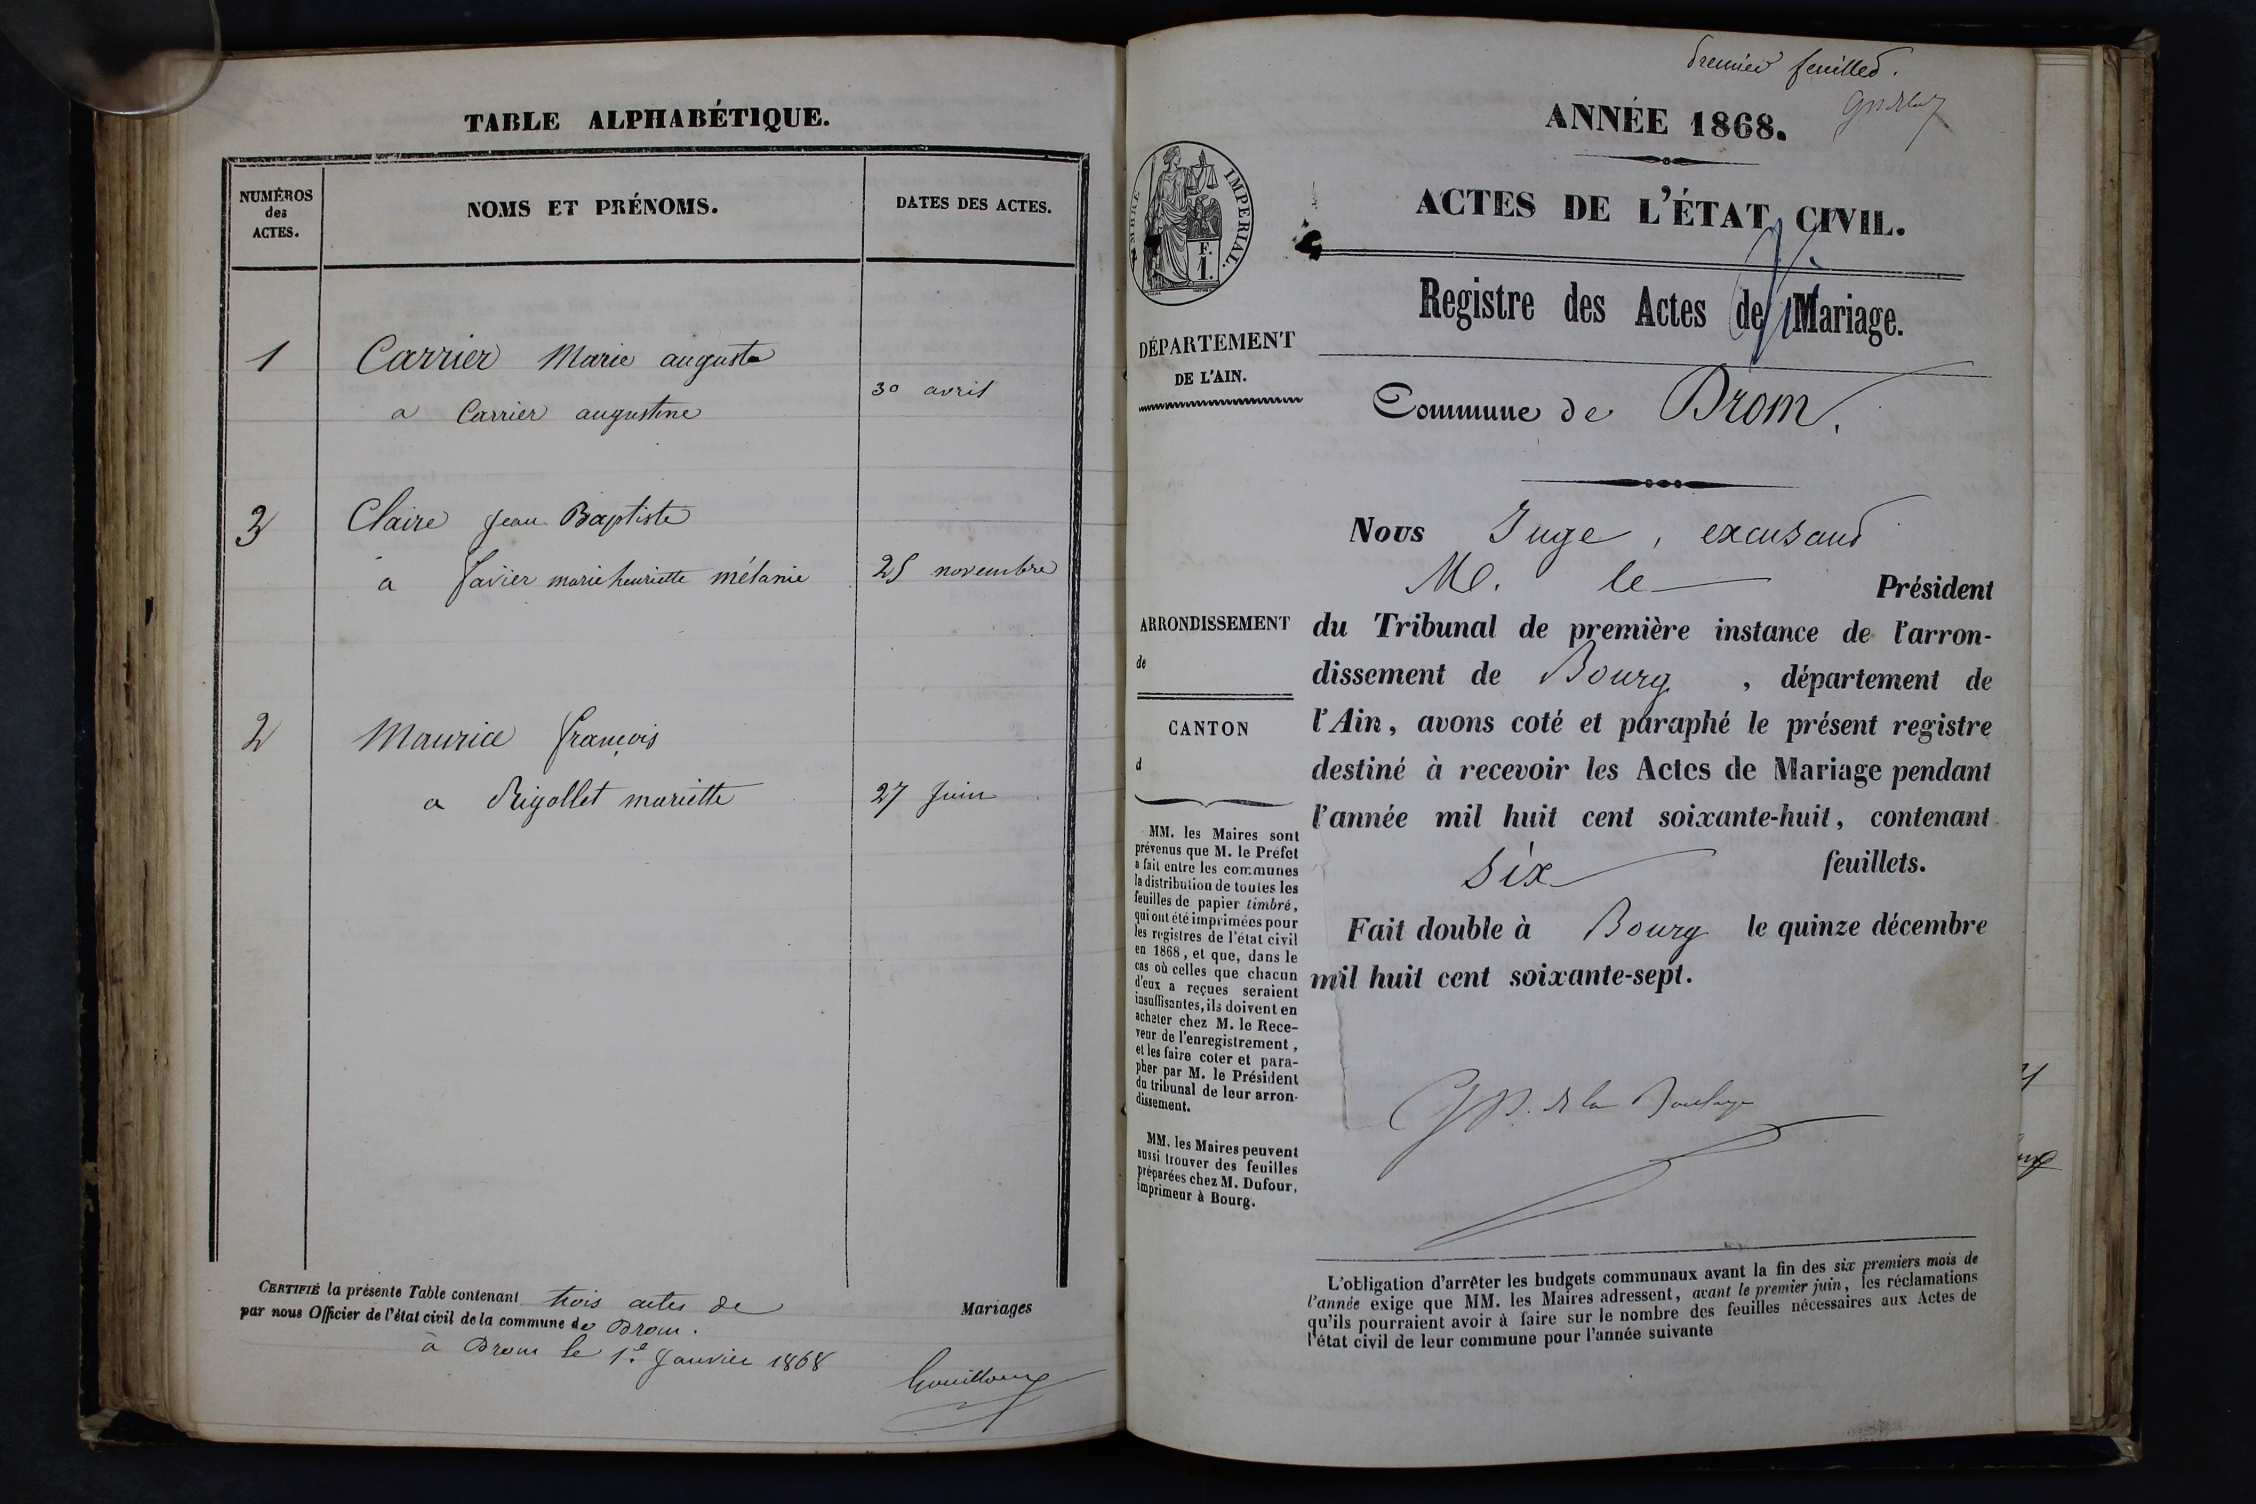 TABLE ALPHABÉTIQUE.
NUMÉROS des ACTES.
NOMS ET PRÉNOMS.
DATES DES ACTES.
1 Carrier Marie auguste
a Carrier augustine 30 avril
3 Claire Jean Baptiste
a Favier marie henriette mélanie 25 novembre
2 Maurice françois
a Rigollet mariette 27 Juin
CERTIFIÉ la présente Table contenant trois actes de Mariages
par nous Officier de l'état civil de la commune de Drom.
à Drom le 1.e Janvier 1868
Gouilloux
Premier feuillet.
ANNÉE 1868.
ACTES DE L'ÉTAT CIVIL.
TIMBRE IMPERIAL.
F.
1.
Registre des Actes de Mariage.
DÉPARTEMENT
DE L'AIN.
Commune de Drom.
Nous Juge, excusant
M. le Président
ARRONDISSEMENT
de
CANTON
d
du Tribunal de première instance de l'arron-
dissement de Bourg, département de
l'Ain, avons coté et paraphé le présent registre
destiné à recevoir les Actes de Mariage pendant
l'année mil huit cent soixante-huit, contenant
six feuillets.
Fait double à Bourg le quinze décembre
mil huit cent soixante-sept.
MM. les Maires sont
prévenus que M. le Préfet
a fait entre les communes
la distribution de toutes les
feuilles de papier timbré,
qui ont été imprimées pour
les registres de l'état civil
en 1868, et que, dans le
cas où celles que chacun
d'eux a reçues seraient
insuffisantes, ils doivent en
acheter chez M. le Rece-
veur de l'enregistrement,
et les faire coter et para-
pher par M. le Président
du tribunal de leur arron-
dissement.
MM. les Maires peuvent
aussi trouver des feuilles
préparées chez M. Dufour,
imprimeur à Bourg.
L'obligation d'arrêter les budgets communaux avant la fin des six premiers mois de
l'année exige que MM. les Maires adressent, avant le premier juin, les réclamations
qu'ils pourraient avoir à faire sur le nombre des feuilles nécessaires aux Actes de
l'état civil de leur commune pour l'année suivante